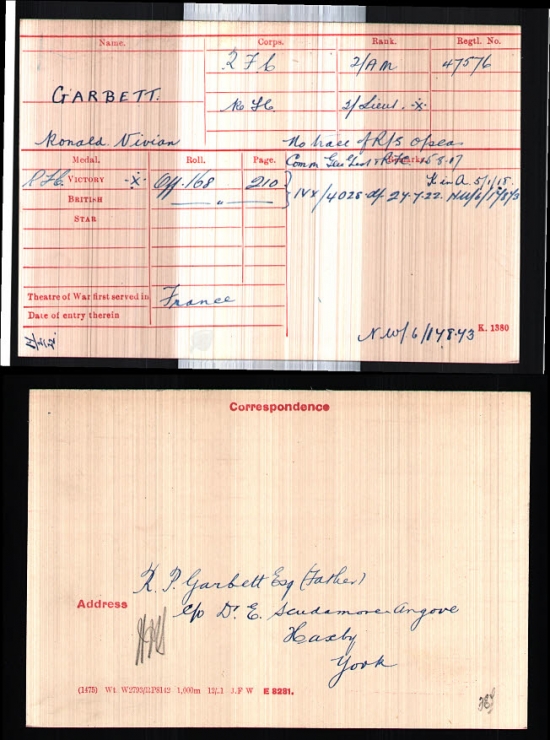 Name. Corps. Rank. Regtl. No.
R F C 2/AM 47576
GARBETT.
R. F. C. 2/Lieut. -x-
Ronald Vivian No trace of R/S o/seas
Medal. Roll. Page. Comm Gen List & R.F.C. 5.17
VICTORY -x- Off. 168 210 K in A 5/1/18.
BRITISH — „ — IVX/4028 24.7.22. NW/6/17843
STAR
Theatre of War first served in France
Date of entry therein
NW/6/17843 K. 1380
Correspondence
R. P. Garbett Esq (Father)
Address c/o Dr. E. Scudamore-Angove
Haxby
York
(1475) Wt. W2793/RP8142 1,000m 12/.1 J.F W E 8281.